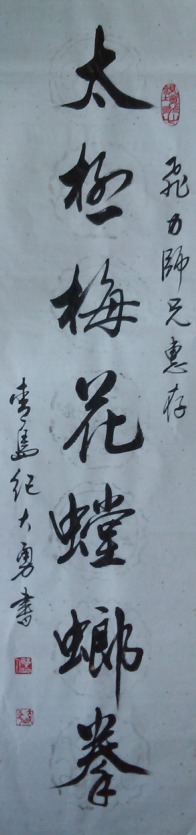 飛力師兄惠存
太極梅花螳螂拳
青島紀大勇書